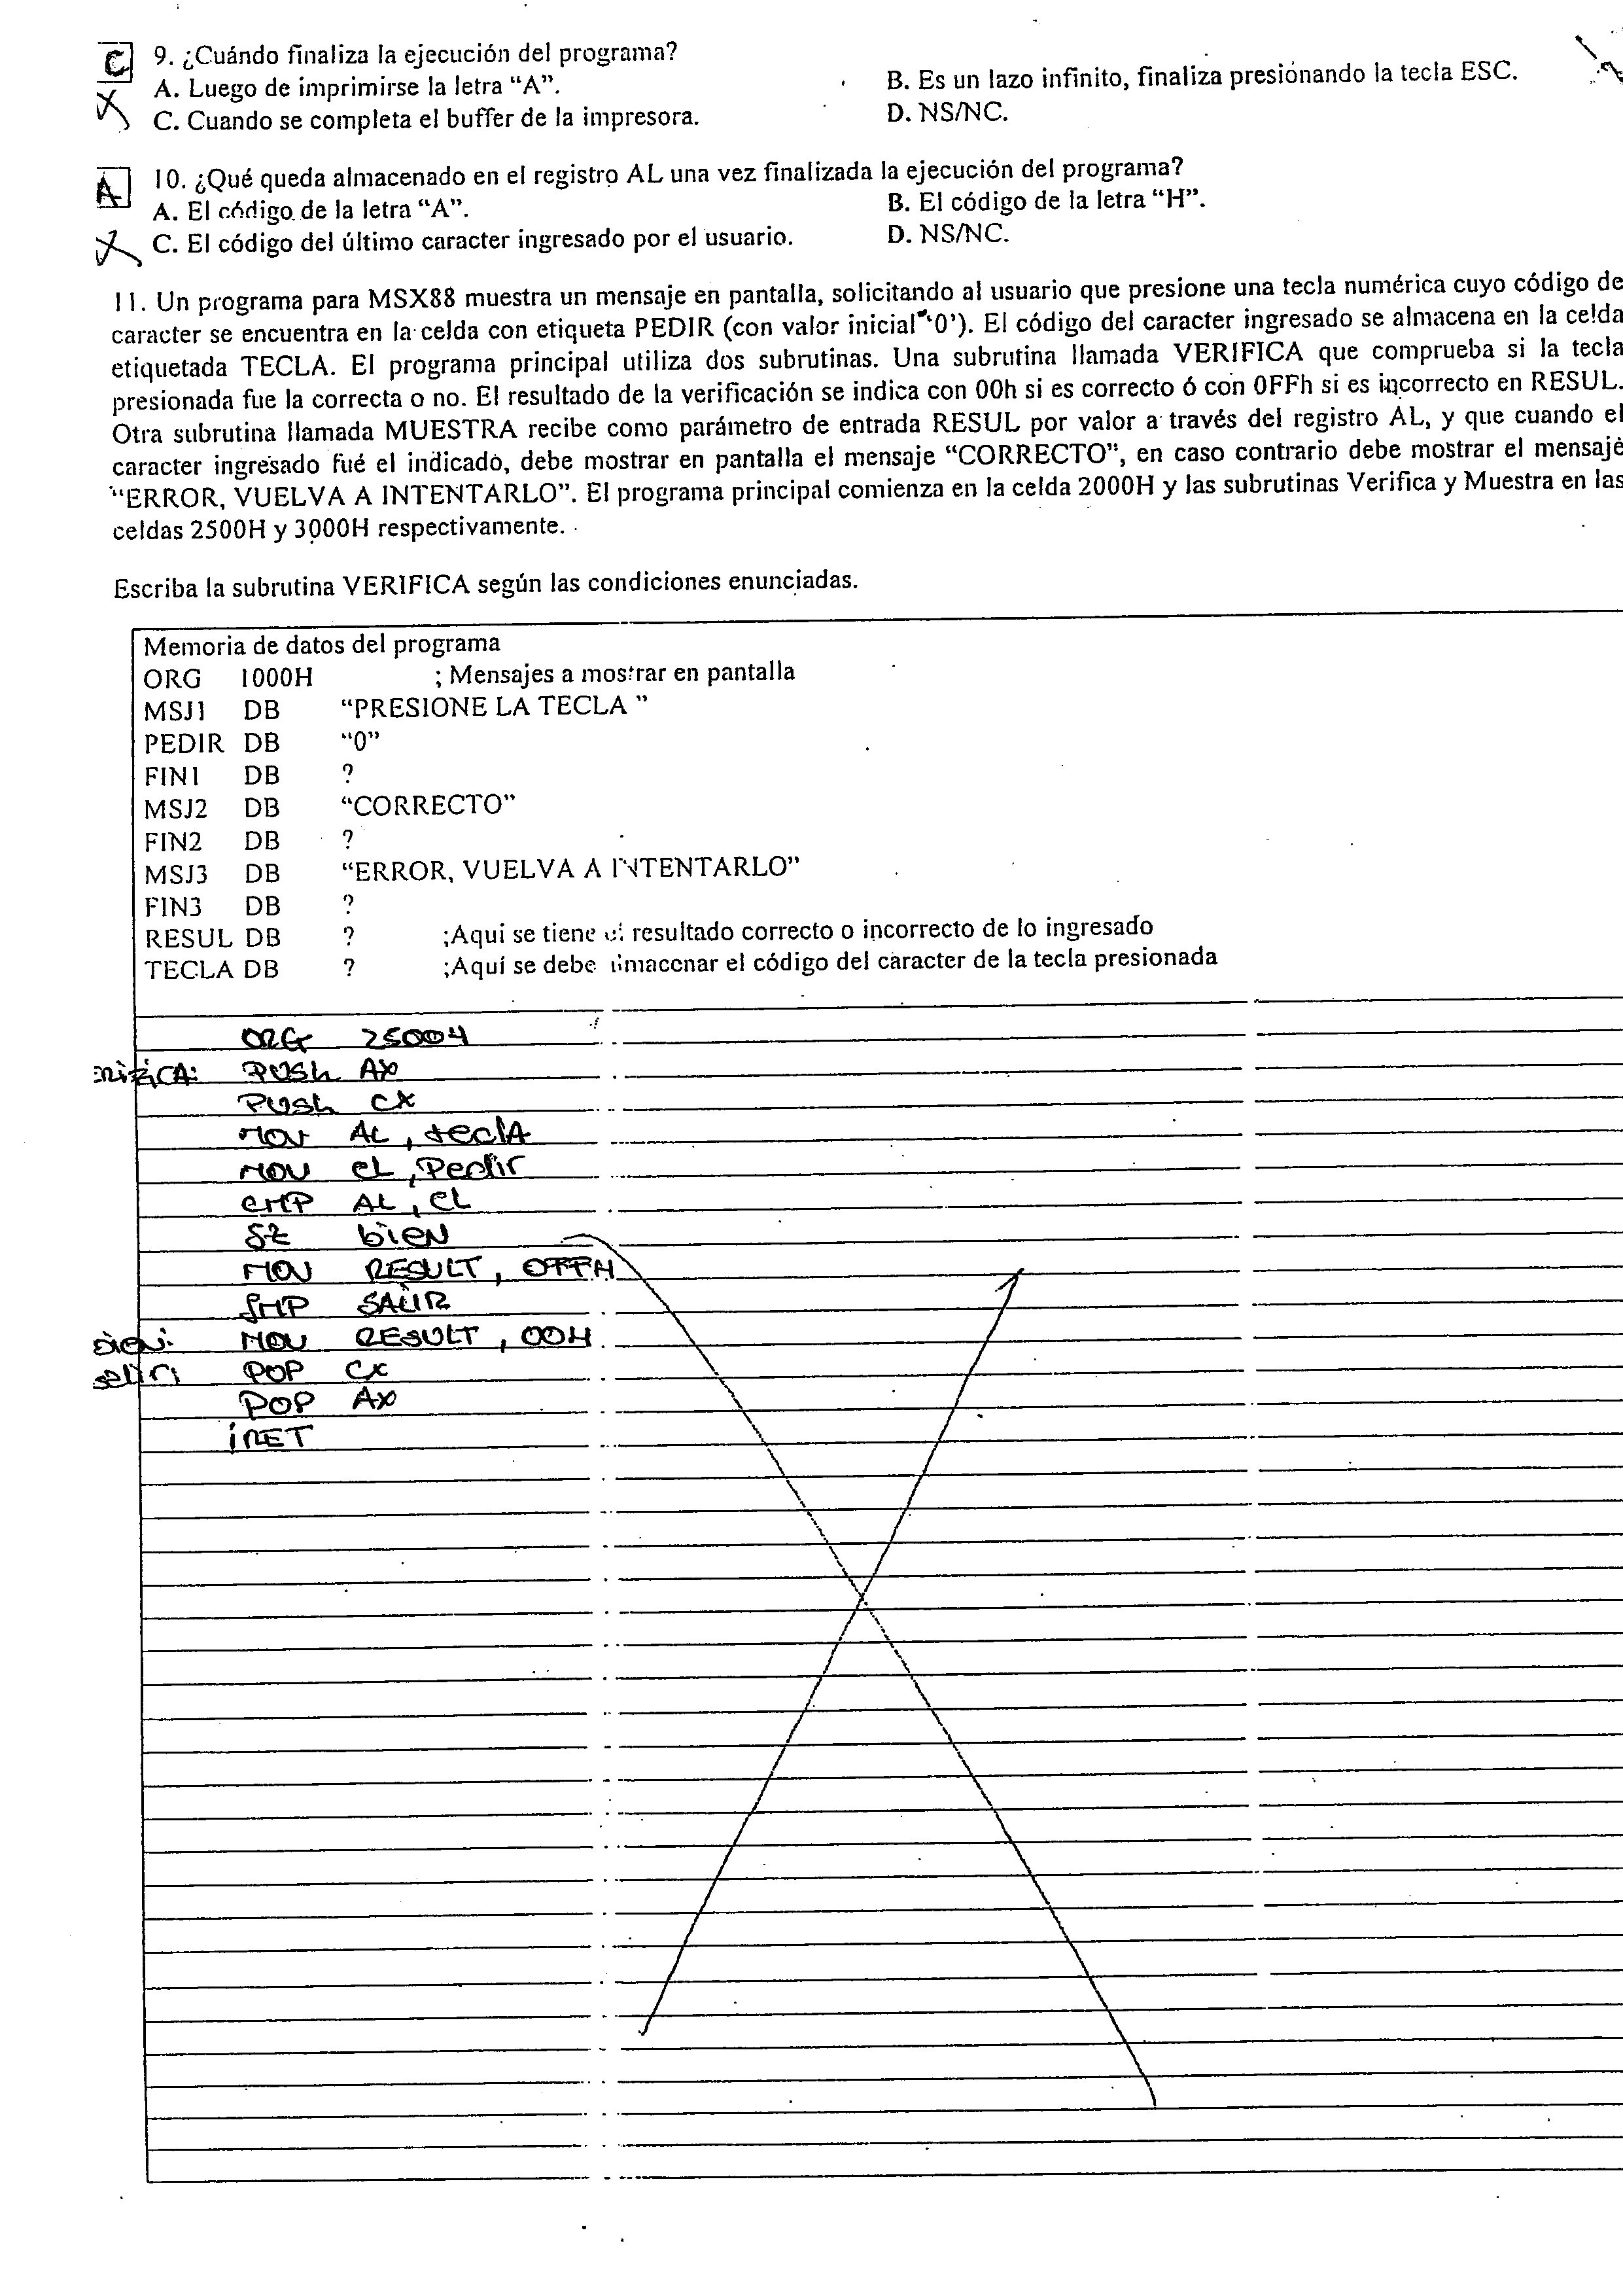 C 9. ¿Cuándo finaliza la ejecución del programa?
A. Luego de imprimirse la letra “A”. B. Es un lazo infinito, finaliza presionando la tecla ESC.
C. Cuando se completa el buffer de la impresora. D. NS/NC.
A 10. ¿Qué queda almacenado en el registro AL una vez finalizada la ejecución del programa?
A. El código de la letra “A”. B. El código de la letra “H”.
C. El código del último caracter ingresado por el usuario. D. NS/NC.
11. Un programa para MSX88 muestra un mensaje en pantalla, solicitando al usuario que presione una tecla numérica cuyo código de
caracter se encuentra en la celda con etiqueta PEDIR (con valor inicial ‘0’). El código del caracter ingresado se almacena en la celda
etiquetada TECLA. El programa principal utiliza dos subrutinas. Una subrutina llamada VERIFICA que comprueba si la tecla
presionada fue la correcta o no. El resultado de la verificación se indica con 00h si es correcto ó con 0FFh si es incorrecto en RESUL.
Otra subrutina llamada MUESTRA recibe como parámetro de entrada RESUL por valor a través del registro AL, y que cuando el
caracter ingresado fué el indicado, debe mostrar en pantalla el mensaje “CORRECTO”, en caso contrario debe mostrar el mensaje
“ERROR, VUELVA A INTENTARLO”. El programa principal comienza en la celda 2000H y las subrutinas Verifica y Muestra en las
celdas 2500H y 3000H respectivamente.
Escriba la subrutina VERIFICA según las condiciones enunciadas.
Memoria de datos del programa
ORG 1000H ; Mensajes a mostrar en pantalla
MSJ1 DB “PRESIONE LA TECLA ”
PEDIR DB “0”
FIN1 DB ?
MSJ2 DB “CORRECTO”
FIN2 DB ?
MSJ3 DB “ERROR, VUELVA A INTENTARLO”
FIN3 DB ?
RESUL DB ? ;Aqui se tiene el resultado correcto o incorrecto de lo ingresado
TECLA DB ? ;Aquí se debe almacenar el código del caracter de la tecla presionada
ORG 2500H
ERIFICA: PUSH AX
PUSH CX
MOV AL, tecla
MOV CL, Pedir
CMP AL, CL
JZ bien
MOV RESULT, OFFH
JMP SALIR
bien: MOV RESULT, 00H
salir: POP CX
POP AX
iRET